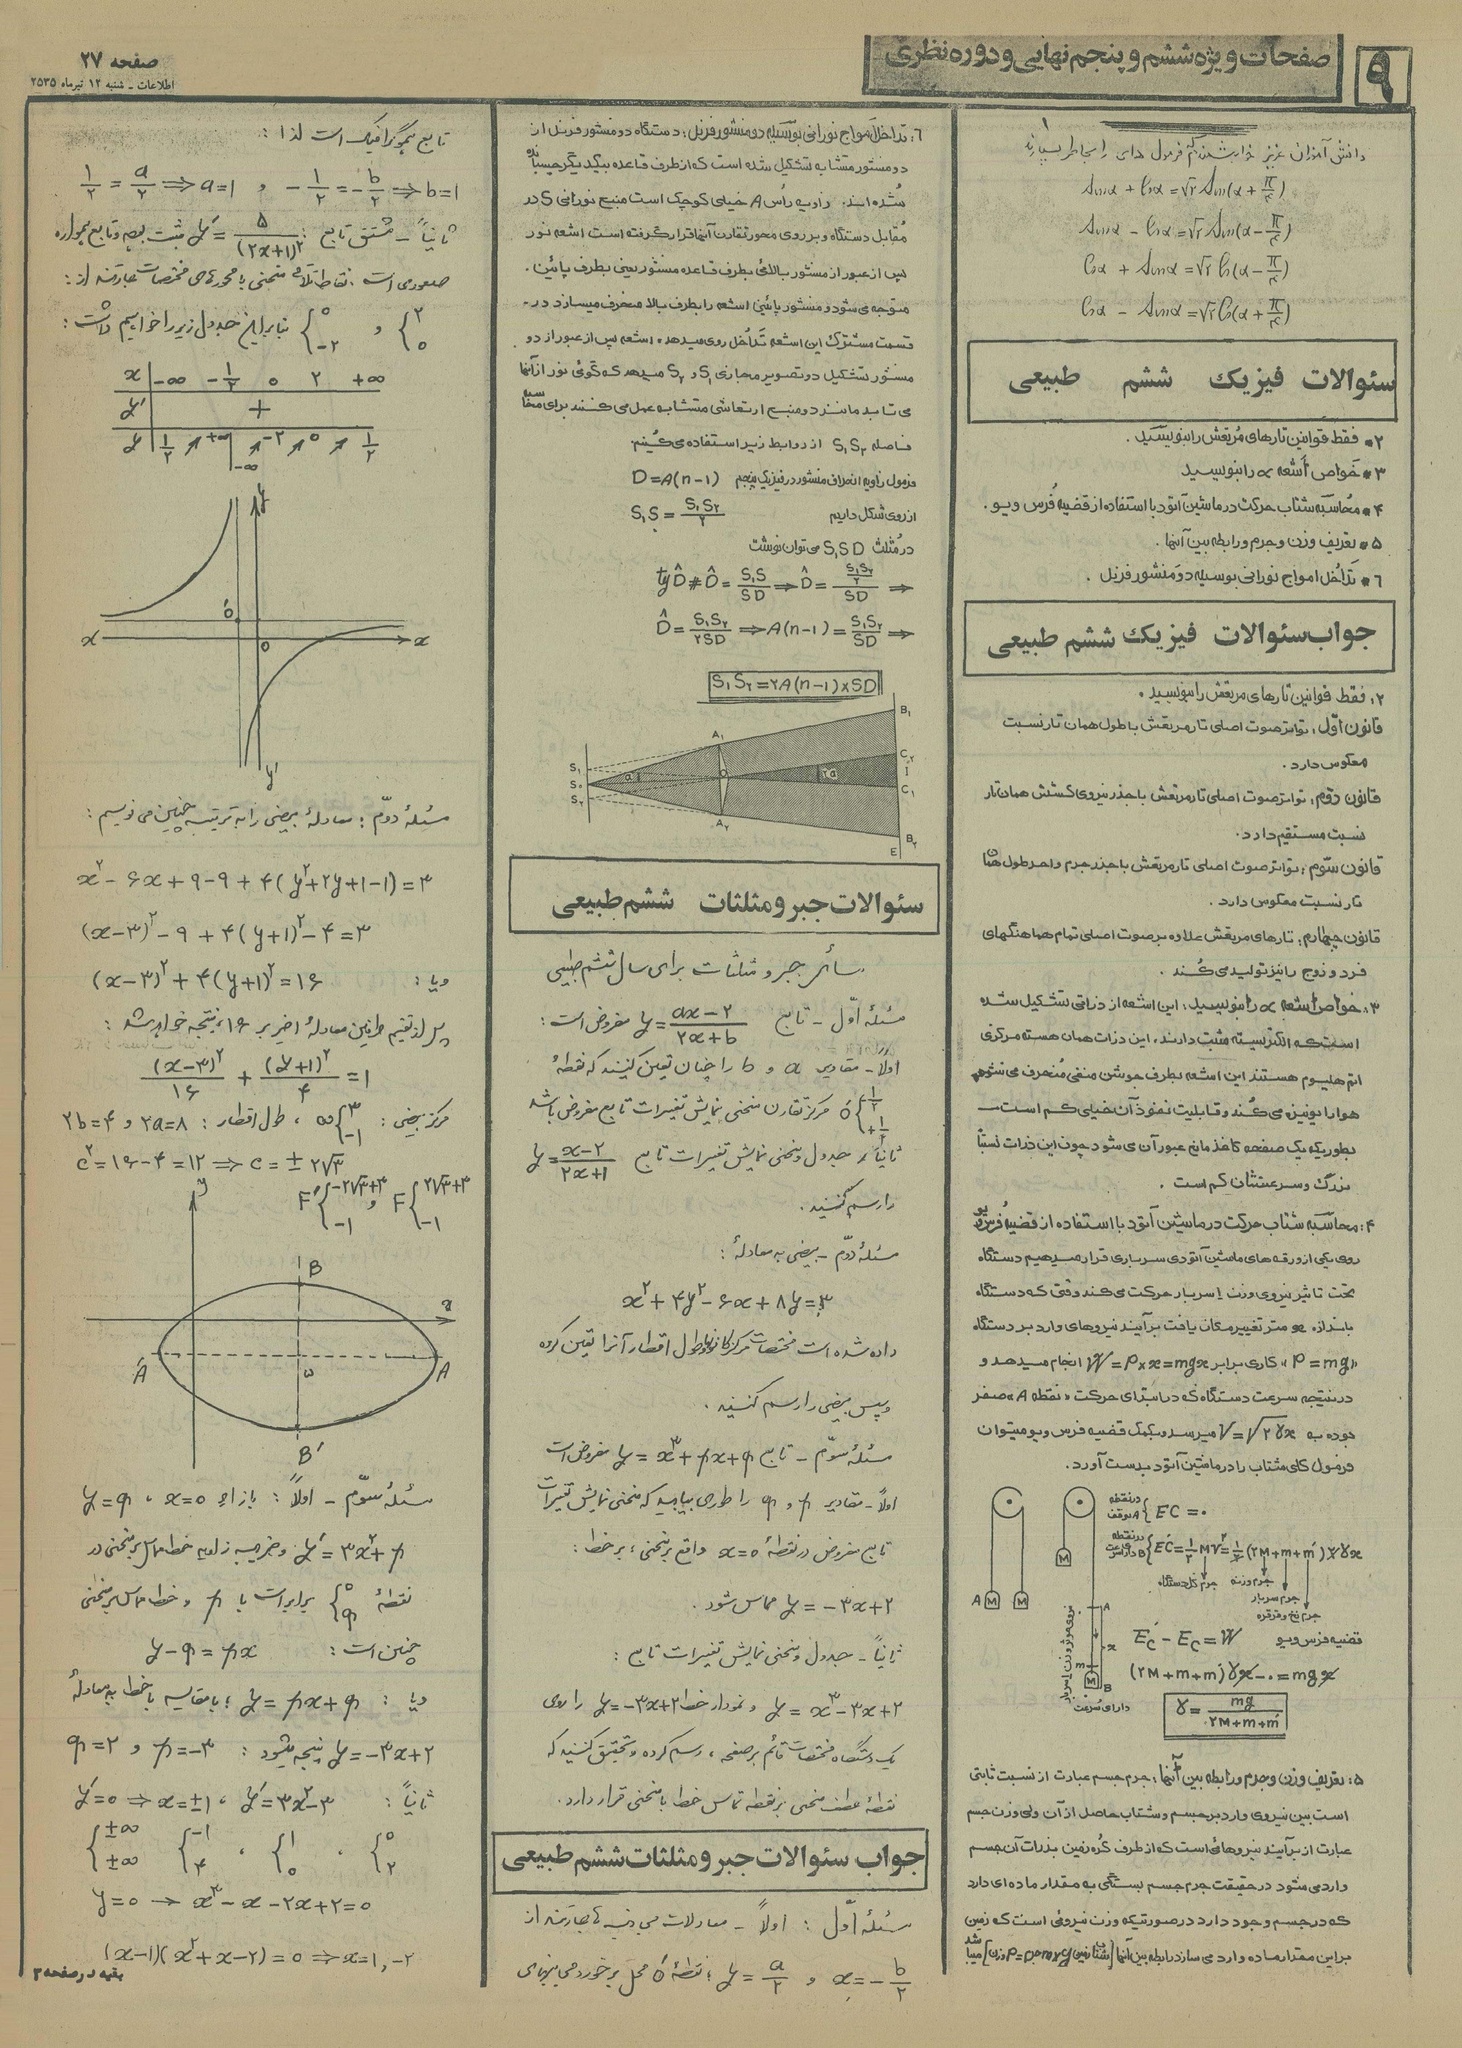 صفحات ویژه ششم و پنجم نهایی و دوره نظری
صفحه ۲۷
اطلاعات ـ شنبه ۱۲ تیرماه ۲۵۳۵
Sinα + Cosα = √۲ Sin(α + π/۴)
Sinα - Cosα = √۲ Sin(α - π/۴)
Cosα + Sinα = √۲ Cos(α - π/۴)
Cosα - Sinα = √۲ Cos(α + π/۴)
سئوالات فیزیک ششم طبیعی
۲* فقط قوانین تارهای مرتعش را بنویسید.
۳* خواص اشعه α را بنویسید
۴* محاسبه شتاب حرکت در ماشین آتود با استفاده از قضیه فرس ویو.
۵* تعریف وزن و جرم و رابطه بین آنها.
۶* تداخل امواج نورانی بوسیله دو منشور فرنل.
جواب سئوالات فیزیک ششم طبیعی
۲: فقط قوانین تارهای مرتعش را بنویسید.
قانون اوّل: تواتر صوت اصلی تار مرتعش با طول همان تار نسبت
معکوس دارد.
قانون دوم: تواتر صوت اصلی تار مرتعش با جذر نیروی کشش همان تار
نسبت مستقیم دارد.
قانون سوم: تواتر صوت اصلی تار مرتعش با جذر جرم واحد طول همان
تار نسبت معکوس دارد.
قانون چهارم: تارهای مرتعش علاوه بر صوت اصلی تمام هماهنگهای
فرد و زوج را نیز تولید می‌کند.
۳: خواص اشعه α را بنویسید: این اشعه از ذراتی تشکیل شده
است که الکتریسیته مثبت دارند، این ذرات همان هسته مرکزی
اتم هلیوم هستند این اشعه بطرف جوشن منفی منحرف می‌شود
هوا را یونیزه می‌کند و قابلیت نفوذ آن خیلی کم است
بطوریکه یک صفحه کاغذ مانع عبور آن می‌شود چون این ذرات نسبتاً
بزرگ و سرعتشان کم است.
۴: محاسبه شتاب حرکت در ماشین آتود با استفاده از قضیه فرس ویو
روی یکی از وزنه‌های ماشین آتودی سرباری قرار میدهیم دستگاه
تحت تاثیر نیروی وزن سربار حرکت می‌کند وقتی که دستگاه
باندازه x متر تغییر مکان یافت برآیند نیروهای وارد بر دستگاه
«P = mg» کاری برابر W = P×x = mgx انجام میدهد و
در نتیجه سرعت دستگاه که در ابتدای حرکت «نقطه A» صفر
بوده به V = √۲γx میرسد و بکمک قضیه فرس ویو میتوان
فرمول کلی شتاب را در ماشین آتود بدست آورد.
در نقطه A توقف } EC = ۰
EC' = ۱/۲ MV² = ۱/۲ (۲M + m + m') ۲γx
جرم کل دستگاه
جرم وزنه
جرم سربار
جرم نخ و قرقره
A M M M
A x m M B
دارای سرعت
قضیه فرس ویو E'C - EC = W
(۲M + m + m') γx - ۰ = mgx
γ = mg / ۲M + m + m'
۵: تعریف وزن و جرم و رابطه بین آنها: جرم جسم عبارت از نسبت ثابتی
است بین نیروی وارد بر جسم و شتاب حاصل از آن ولی وزن جسم
عبارت از برآیند نیروهائی است که از طرف کره زمین بذرات آن جسم
وارد می‌شود در حقیقت جرم جسم بستگی به مقدار ماده‌ای دارد
که در جسم وجود دارد در صورتیکه وزن نیروئی است که زمین
بر این مقدار ماده وارد می‌سازد رابطه بین آنها
۶: تداخل امواج نورانی بوسیله دو منشور فرنل: دستگاه دو منشور فرنل از
دو منشور متشابه تشکیل شده است که از طرف قاعده بیکدیگر چسبانده
شده‌اند. زاویه رأس A خیلی کوچک است منبع نورانی S در
مقابل دستگاه و بر روی محور تقارن آنها قرار گرفته است اشعه نور
پس از عبور از منشور بالائی بطرف قاعده منشور یعنی بطرف پائین
متوجه می‌شود و منشور پائین اشعه را بطرف بالا منحرف میسازد در
قسمت مشترک این اشعه تداخل روی میدهد. اشعه پس از عبور از دو
منشور تشکیل دو تصویر مجازی S۱ و S۲ میدهد که گوئی نور از آنها
می‌تابد مانند دو منبع ارتعاشی متشابه عمل می‌کنند برای محاسبه
فاصله S۱S۲ از روابط زیر استفاده می‌کنیم
فرمول زاویه انحراف منشور در فیزیک پنجم D = A(n-۱)
از روی شکل داریم S۱S = S۱S۲/۲
در مثلث S۱SD می‌توان نوشت
tgD̂ # D̂ = S۱S/SD ⟹ D̂ = (S۱S۲/۲)/SD ⟹
D̂ = S۱S۲/۲SD ⟹ A(n-۱) = S۱S۲/SD ⟹
S۱S۲ = ۲A(n-۱)×SD
S۱ S۰ S۲ A۱ A۲ O a ۲a B۱ C۲ I C۱ B۲ E
سئوالات جبر و مثلثات ششم طبیعی
مسائل جبر و مثلثات برای سال ششم طبیعی
مسئله اوّل ـ تابع y = ax-۲/۲x+b مفروض است:
اولاً ـ مقادیر a و b را چنان تعیین کنید که نقطهٔ
O' {-۱/۲, +۱/۲ مرکز تقارن منحنی نمایش تغییرات تابع مفروض باشد
ثانیاً، جدول و منحنی نمایش تغییرات تابع y = x-۲/۲x+۱
را رسم کنید.
مسئله دوّم ـ بیضی به معادلهٔ:
x² + ۴y² - ۶x + ۸y = ۳
داده شده است مختصات مرکز کانونها و طول اقطار آنرا تعیین کرده
و سپس بیضی را رسم کنید.
مسئله سوّم ـ تابع y = x³ + px + q مفروض است
اولاً ـ مقادیر p و q را طوری بیابید که منحنی نمایش تغییرات
تابع مفروض در نقطهٔ x=۰ واقع بر منحنی، بر خط:
y = -۳x+۲ مماس شود.
ثانیاً ـ جدول و منحنی نمایش تغییرات تابع:
y = x³ - ۳x + ۲ و نمودار خط y = -۳x+۲ را روی
یک دستگاه مختصات قائم بر صفحه، رسم کرده و تحقیق کنید که
نقطهٔ عطف منحنی بر نقطه تماس خط با منحنی قرار دارد.
جواب سئوالات جبر و مثلثات ششم طبیعی
مسئله اوّل: اولاً ـ معادلات مجانبها عبارتند از
x = -b/۲ و y = a/۲؛ نقطهٔ O' محل برخورد مجانبهای
تابع هموگرافیک است لذا:
۱/۲ = a/۲ ⟹ a=۱ و -۱/۲ = -b/۲ ⟹ b=۱
ثانیاً ـ مشتق تابع: y' = ۵/(۲x+۱)² مثبت بوده و تابع همواره
صعودی است، نقاط تلاقی منحنی با محورهای مختصات عبارتند از:
{۲, ۰ و {۰, -۲ بنابراین جدول زیر را خواهیم داشت:
x | -∞ -۱/۲ ۰ ۲ +∞
y' | +
y | ۱/۲ ↗ +∞ | -∞ ↗ -۲ ↗ ۰ ↗ ۱/۲
y x x' y' O O'
مسئله دوّم: معادلهٔ بیضی را به ترتیب چنین می‌نویسیم:
x² - ۶x + ۹ - ۹ + ۴(y² + ۲y + ۱ - ۱) = ۳
(x-۳)² - ۹ + ۴(y+۱)² - ۴ = ۳
و یا: (x-۳)² + ۴(y+۱)² = ۱۶
پس از تقسیم طرفین معادلهٔ اخیر بر ۱۶، نتیجه خواهد شد:
(x-۳)²/۱۶ + (y+۱)²/۴ = ۱
مرکز بیضی: ω {۳, -۱، طول اقطار: ۲a=۸ و ۲b=۴
c² = ۱۶-۴ = ۱۲ ⟹ c = ±۲√۳
F' {-۲√۳+۳, -۱ و F {۲√۳+۳, -۱
y x B A A' ω B'
مسئله سوّم ـ اولاً: بازاء x=۰، y=q
y' = ۳x²+p و ضریب زاویه خط مماس بر منحنی در
نقطهٔ {۰, q برابر است با p و خط مماس بر منحنی
چنین است: y-q = px
و یا: y = px+q؛ با مقایسه با خط به معادلهٔ
y = -۳x+۲ نتیجه میشود: p=-۳ و q=۲
ثانیاً: y' = ۳x²-۳، y'=۰ ⟹ x=±۱
{±∞, ±∞ {-۱, ۴، {۱, ۰، {۰, ۲
y=۰ → x³ - x - ۲x + ۲ = ۰
(x-۱)(x²+x-۲) = ۰ ⟹ x = ۱, -۲
بقیه در صفحه ۳